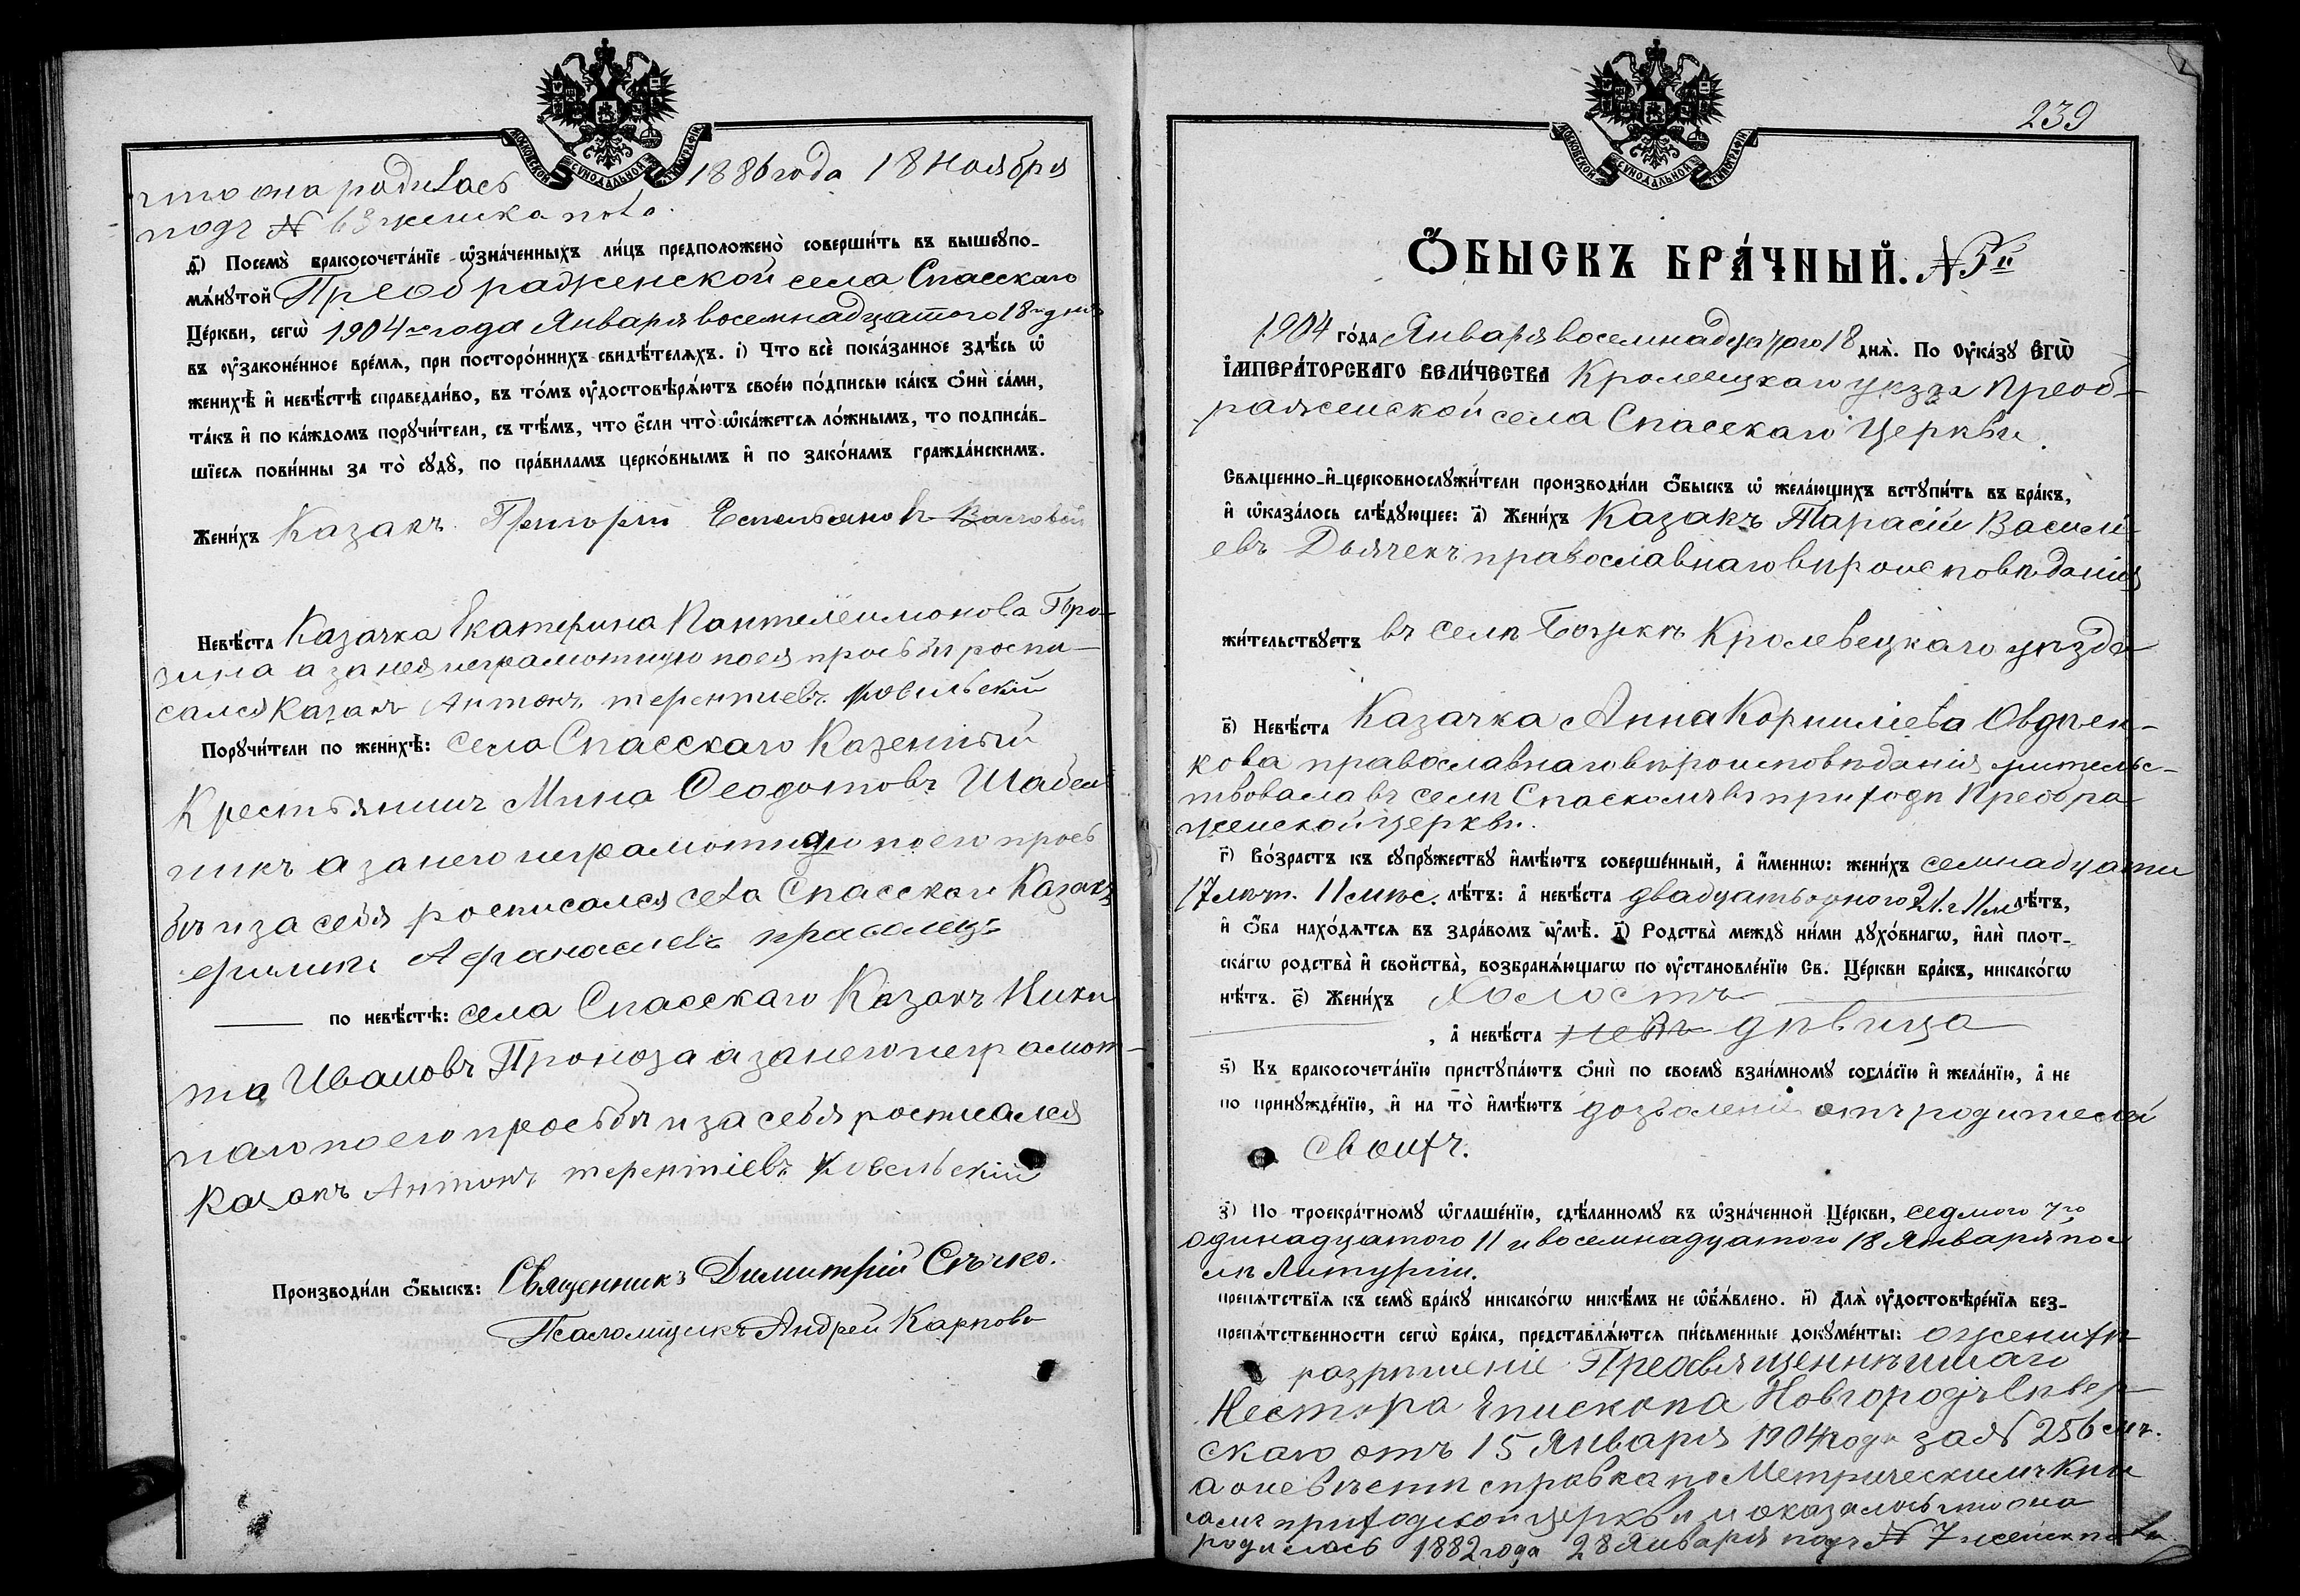 МОСКОВСКОЙ СУНОДАЛЬНОЙ ТИПОГРАФІИ
что она родилась 1886 года 18 Ноября
подъ № 63 женска пола.
д҃і) Посемѹ̀ бракосочета́нїе ѡ҆зна́ченныхъ ли́цъ предположено̀ соверши́ть въ вышеупо-
мѧ́нутой Преображенской села Спасскаго
Це́ркви, сегѡ̀ 1904го года Января восемнадцатого 18го дня
въ ѹ҆законе́нное вре́мѧ, при посторо́ннихъ свидѣ́телѧхъ. і҃) Что всѐ пока́занное здѣ́сь ѡ҆
женихѣ̀ и҆ невѣ́стѣ справедли́во, въ то́мъ ѹ҆достовѣрѧ́ютъ свое́ю по́дписью ка́къ ѻ҆нѝ са́ми,
та́къ и҆ по ка́ждомъ порѹчи́тели, съ тѣ́мъ, что є҆́сли что̀ ѡ҆ка́жетсѧ ло́жнымъ, то подписа́в-
шїесѧ пови́нны за то̀ сѹдѹ̀, по пра́виламъ церко́внымъ и҆ по зако́намъ гражда́нскимъ.
Жени́хъ Казакъ Григорій Емельяновъ
Невѣ́ста Казачка Екатерина Пантелеимонова Гро-
зина а за нея неграмотную по ея прозьби роспи-
сался Казакъ Антонъ терентиевъ Ковельский
Порѹчи́тели по женихѣ̀: Села Спасскаго Казенный
Крестьянинъ Мина Феодотовъ Шабель
никъ а за него неграмотнаго по его прозь
бъ и за себя росписался села Спасскаго Казакъ
Афанасиевъ
по невѣ́стѣ: Села Спасскаго Казакъ Ники
та Ивановъ Проноза а за него неграмот-
наго по его прозьби и за себя росписался
Казакъ Антонъ терентіевъ Ковельскій
Производи́ли ѻ҆́быскъ: Священникъ Димитрій Сѣчко.
Псаломщикъ Андрей Карпова
МОСКОВСКОЙ СУНОДАЛЬНОЙ ТИПОГРАФІИ
239
Ѻ҆́БЫСКЪ БРА́ЧНЫЙ. № 5й
1904 го́да Января восемнадцатого 18 днѧ̀. По Ѹ҆ка́зу Є҆ГѠ̀
І҆МПЕРА́ТОРСКАГО ВЕЛИ́ЧЕСТВА Кролевецкаго уезда Преоб-
раженской села Спасскаго Церкви.
Свѧщенно-и҆-церковнослужи́тели производи́ли ѻ҆́быскъ ѡ҆ жела́ющихъ вступи́ть въ бра́къ,
и҆ ѡ҆каза́лось слѣ́дующее: а҃) Жени́хъ Казакъ Тарасій Васили-
евъ Дьячекъ православнаго вѣроисповѣданія
жи́тельствуетъ въ селѣ Божкѣ Кролевецкаго уѣзда
в҃) Невѣ́ста Казачка Анна Корниліева Овдѣен-
кова православнаго вѣроисповѣданія жительс-
твовала въ селѣ Спаскомъ въ приходѣ Преобра-
женской церкви.
г҃) Во́зрастъ къ сѹпрѹ́жествѹ и҆мѣ́ютъ соверше́нный, а҆ и҆́меннѡ: жени́хъ семнадцати
17 лѣт. 11 мѣс. лѣ́тъ: а҆ невѣ́ста двадцать одного 21 г 11 м лѣ́тъ,
и҆ ѻ҆́ба нахо́дѧтсѧ въ здра́вомъ ѹ҆мѣ̀. д҃) Родства̀ междѹ ни́ми дѹхо́внагѡ, и҆лѝ плот-
ска́гѡ родства̀ и҆ свойства̀, возбранѧ́ющагѡ по ѹ҆становле́нїю Св. Це́ркви бра́къ, никако́гѡ
нѣ́тъ. є҃) Жени́хъ Холостъ
, а҆ невѣ́ста девица
ѕ҃) Къ бракосочета́нїю пристѹпа́ютъ ѻ҆нѝ по своемѹ̀ взаи́мномѹ согла́сїю и҆ жела́нїю, а҆ не
по принѹжде́нїю, и҆ на то̀ и҆мѣ́ютъ дозволеніе отъ родителей
своихъ.
з҃) По троекра́тномѹ ѡ҆глаше́нїю, сдѣ́ланномѹ въ ѡ҆зна́ченной Це́ркви, седмого 7го
одинадцатого 11 и восемнадцатого 18 Января пос
лѣ Литургіи.
препѧ́тствїѧ къ семѹ̀ бра́кѹ никако́гѡ никѣ́мъ не ѡ҆б̾ѧ́влено. и҃) Длѧ̀ ѹ҆достовѣре́нїѧ без-
препѧ́тственности сегѡ̀ бра́ка, представлѧ́ютсѧ пи́сьменные докѹме́нты: о женихѣ
разрѣшеніе Преосвященнѣишаго
Нестора Епископа Новгородъ Сѣвер-
скаго отъ 15 Января 1904 года за № 256мъ.
а о невѣсти справка по Метрическимъ Кни
гамъ приходской церкви и оказалось что она
родилась 1882 года 28 Января подъ № 7 женск пола